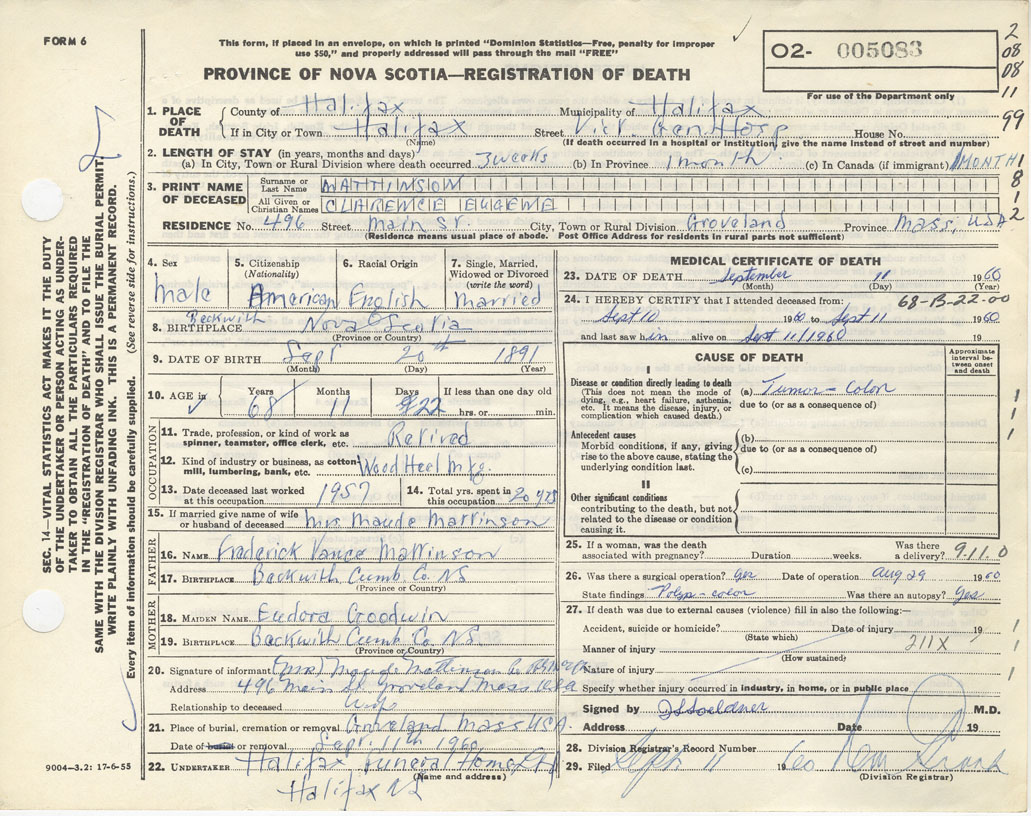 FORM 6
This form, if placed in an envelope, on which is printed "Dominion Statistics—Free, penalty for improper
use $50," and properly addressed will pass through the mail "FREE"
PROVINCE OF NOVA SCOTIA—REGISTRATION OF DEATH
O2- 005083
For use of the Department only
2
08
08
11
99
1. PLACE OF DEATH { County of Halifax Municipality of Halifax
If in City or Town Halifax Street Vict. Gen. Hosp House No.
(Name) (If death occurred in a hospital or Institution, give the name instead of street and number)
2. LENGTH OF STAY (in years, months and days)
(a) In City, Town or Rural Division where death occurred 3 weeks (b) In Province 1 month (c) In Canada (if immigrant) 1 MONTH
3. PRINT NAME OF DECEASED
Surname or Last Name MATTINSON
All Given or Christian Names CLARENCE EUGENE
8
1
2
RESIDENCE No. 496 Street Main St. City, Town or Rural Division Groveland Province Mass, USA
(Residence means usual place of abode. Post Office Address for residents in rural parts not sufficient)
4. Sex male
5. Citizenship (Nationality) American
6. Racial Origin English
7. Single, Married, Widowed or Divorced (write the word) Married
8. BIRTHPLACE Beckwith Nova Scotia
(Province or Country)
9. DATE OF BIRTH Sept 20th 1891
(Month) (Day) (Year)
10. AGE in Years 68 Months 11 Days 22 If less than one day old hrs. or min.
OCCUPATION
11. Trade, profession, or kind of work as spinner, teamster, office clerk, etc. Retired
12. Kind of industry or business, as cotton mill, lumbering, bank, etc. Wood Heel Mfg.
13. Date deceased last worked at this occupation 1957
14. Total yrs. spent in this occupation 20 yrs
15. If married give name of wife or husband of deceased Mrs Maude Mattinson
FATHER
16. NAME Frederick Vance Mattinson
17. BIRTHPLACE Beckwith Cumb. Co. NS
(Province or Country)
MOTHER
18. MAIDEN NAME Eudora Goodwin
19. BIRTHPLACE Beckwith Cumb. Co N.S.
(Province or Country)
20. Signature of informant (Mrs) Maude Mattinson
Address 496 Main St. Groveland Mass USA
Relationship to deceased Wife
21. Place of burial, cremation or removal Groveland Mass USA.
Date of burial or removal Sept. 11th 1960
22. UNDERTAKER Halifax Funeral Home Ltd
(Name and address)
Halifax NS
MEDICAL CERTIFICATE OF DEATH
23. DATE OF DEATH September 11 1960
(Month) (Day) (Year)
24. I HEREBY CERTIFY that I attended deceased from: 68-B-22-00
Sept 10 1960 to Sept 11 1960
and last saw him alive on Sept 11/1960 19
CAUSE OF DEATH
Approximate interval between onset and death
I
Disease or condition directly leading to death
(This does not mean the mode of dying, e.g., heart failure, asthenia, etc. It means the disease, injury, or complication which caused death.)
(a) Tumor - Colon
due to (or as a consequence of)
Antecedent causes
Morbid conditions, if any, giving rise to the above cause, stating the underlying condition last.
(b)
due to (or as a consequence of)
(c)
II
Other significant conditions contributing to the death, but not related to the disease or condition causing it.
1
1
1
25. If a woman, was the death associated with pregnancy? Duration weeks. Was there a delivery? 9.11.0
26. Was there a surgical operation? Yes Date of operation Aug 29 1960
State findings Polyp - colon Was there an autopsy? Yes
27. If death was due to external causes (violence) fill in also the following:—
Accident, suicide or homicide? Date of injury 19
(State which)
Manner of injury 211X
(How sustained)
Nature of injury
Specify whether injury occurred in industry, in home, or in public place
1
1
1
Signed by M.D.
Address Date 19
28. Division Registrar's Record Number
29. Filed Sept 11 1960
(Division Registrar)
SEC. 14—VITAL STATISTICS ACT MAKES IT THE DUTY
OF THE UNDERTAKER OR PERSON ACTING AS UNDER-
TAKER TO OBTAIN ALL THE PARTICULARS REQUIRED
IN THE "REGISTRATION OF DEATH" AND TO FILE THE
SAME WITH THE DIVISION REGISTRAR WHO SHALL ISSUE THE BURIAL PERMIT.
WRITE PLAINLY WITH UNFADING INK. THIS IS A PERMANENT RECORD.
Every item of information should be carefully supplied. (See reverse side for instructions.)
9004—3.2: 17-6-55